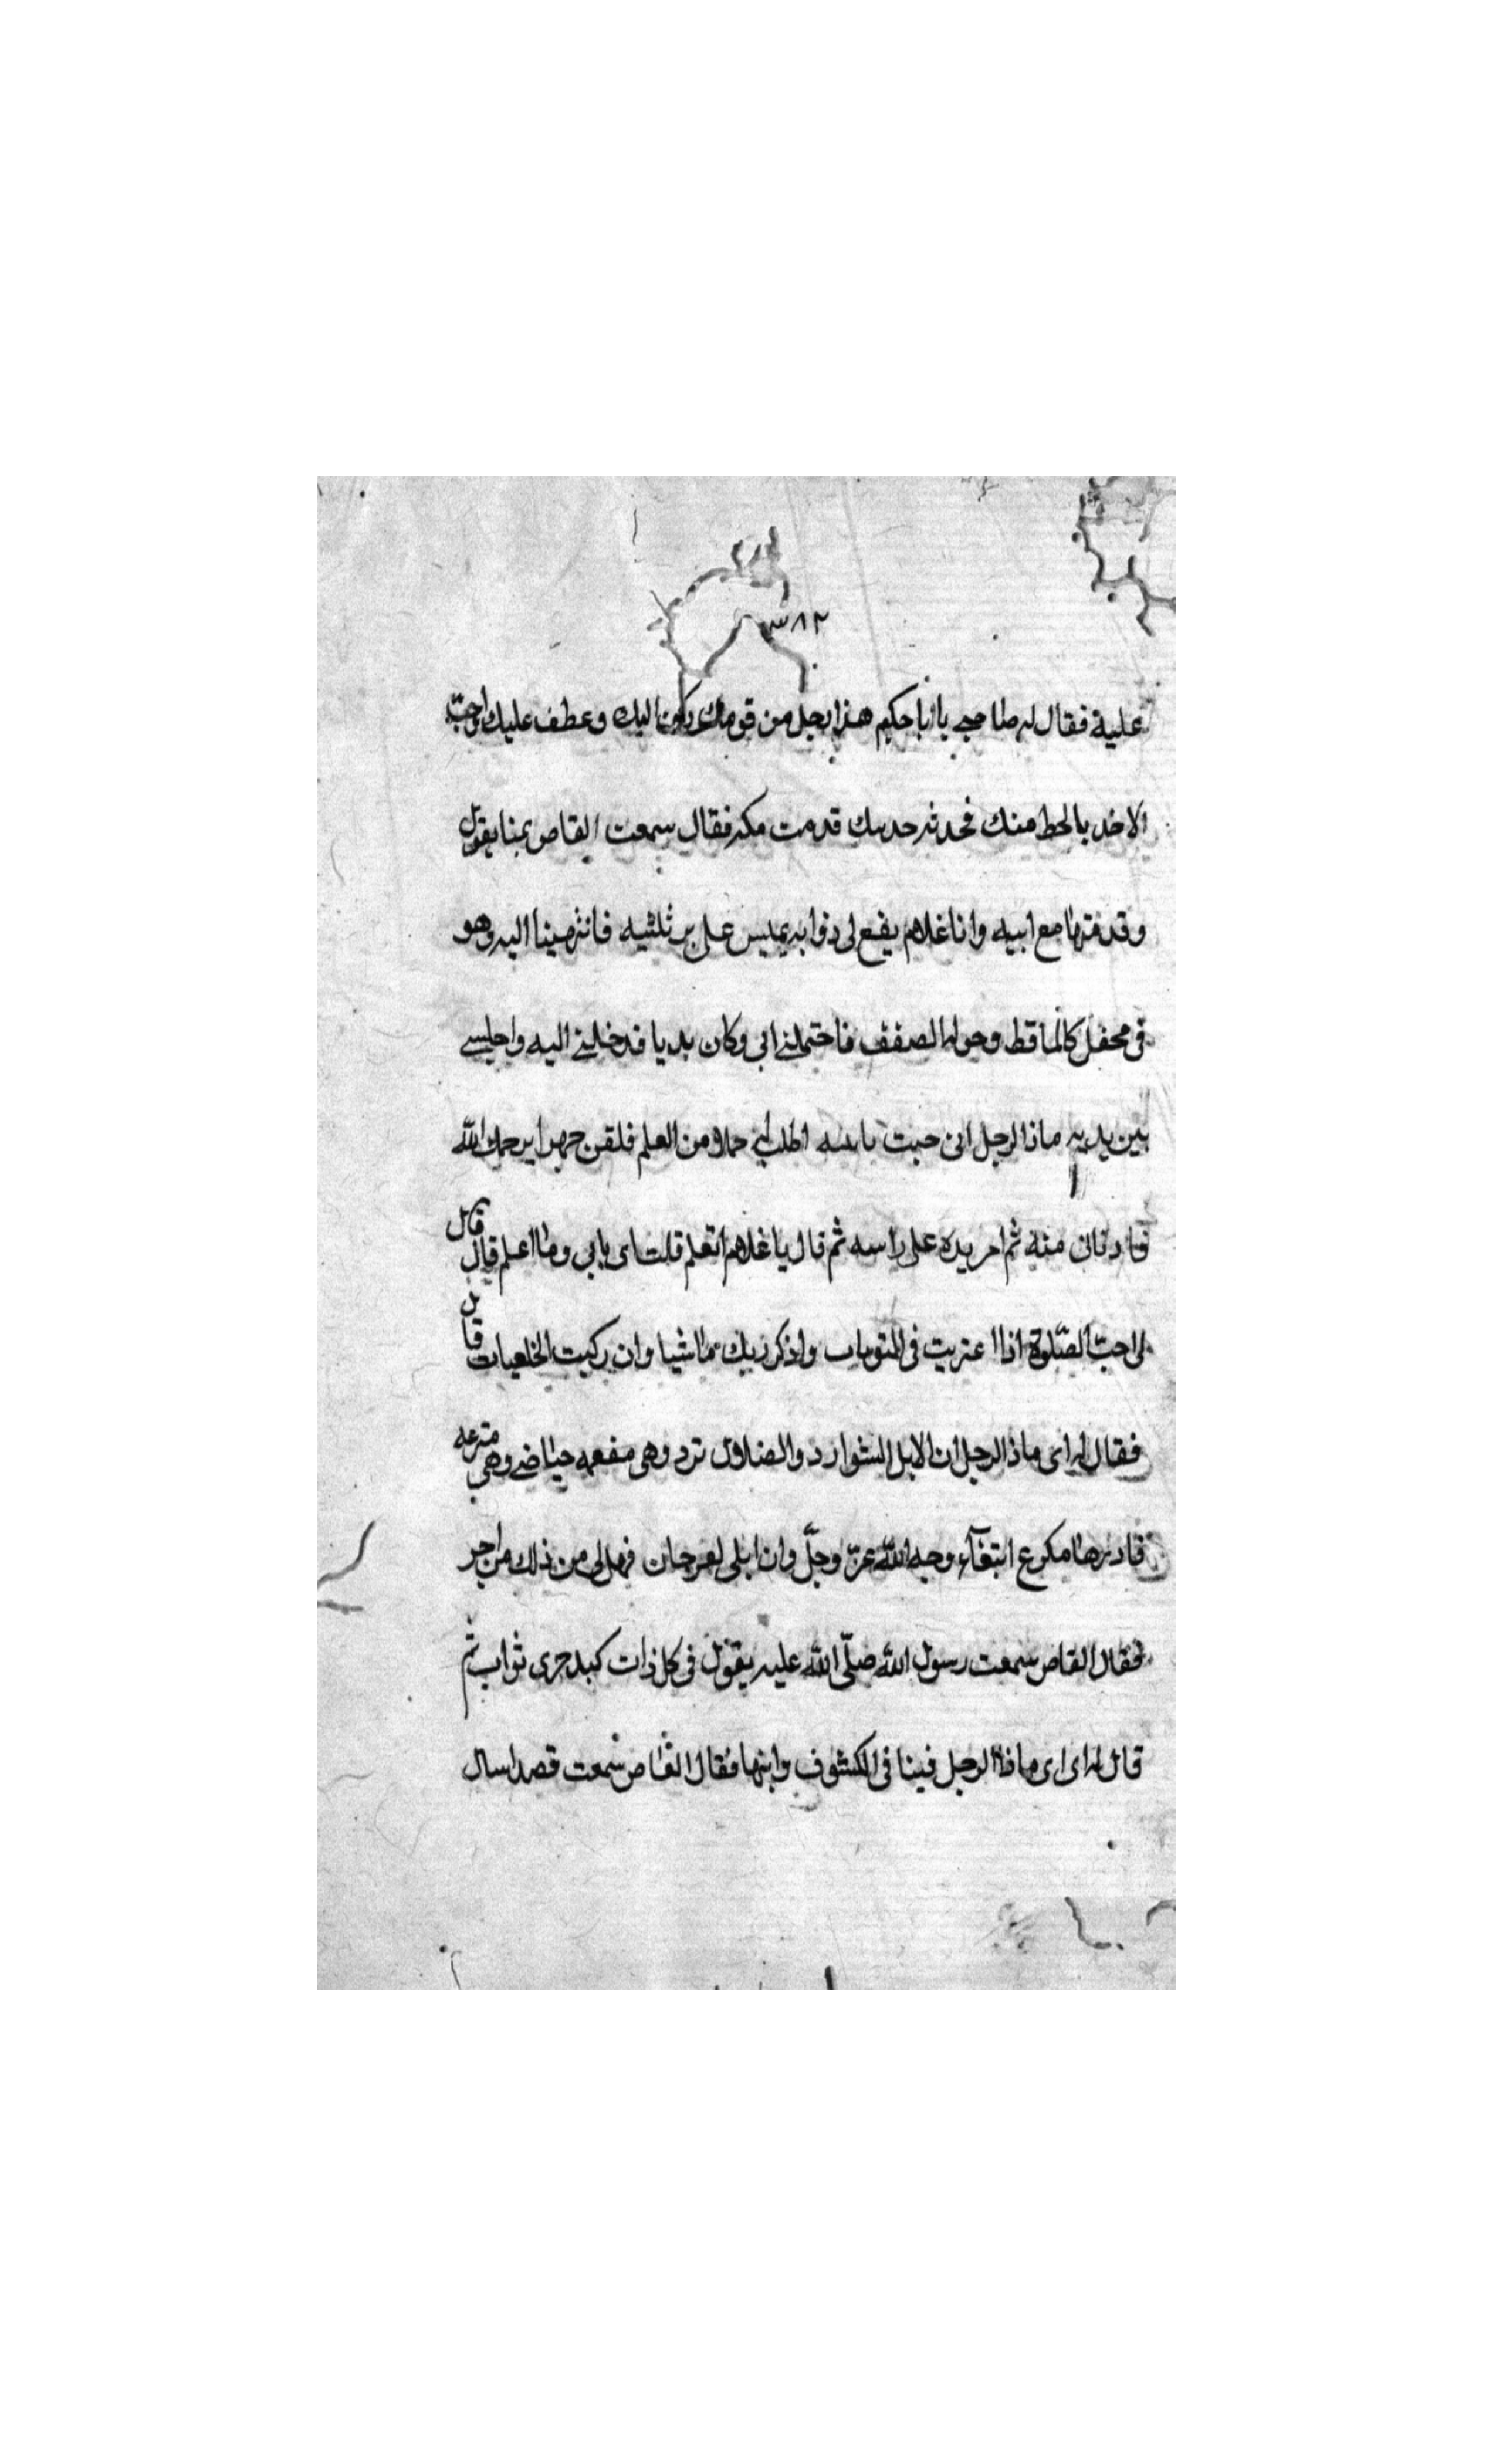 ٣٨٢
عليه فقال له صاحبي يا ابا حكيم هذا رجل من قومك ركونا اليك وعطف عليك واحب
الاخد بالحط منك فحدثه حديثك قدمت مكه فقال سمعت القاص بمنا يقول
وقدمتها مع ابيه وانا غلام يفع لى ذوابه يميس على بر ثلثيه فانتهينا اليه وهو
فى محفل كالماقط وحوله الصفف فاحتملنى ابى وكان بديا فدخلنى اليه واجلسنى
بين يديه ماذا الرجل انى حبت بابنه اطلب حملا من العلم فلقن جهرا يرحمك الله
فادنانى منه ثم امر يده على راسه ثم قال يا غلام اتعلم قلت اى بابى وما اعلم قال
لى احب الصلوة اذا اعتريت فى واذكر ربك مماشيا وان ركبت قال
فقال له اى ماذا الرجل ان الابل الشوارد والضلال ترد وهى مفعمه حياضى وهى مترعه
فادبرها مكرع ابتغآء وجه الله عز وجل وان ابلى لعرجان فهل لى من ذلك من اجر
فقال القاص سمعت رسول الله صلى الله عليه يقول فى كل ذات كبد حرى ثواب ثم
قال له اى اى ماذا الرجل فينا فى الكشوف وابنها فقال القاص سمعت